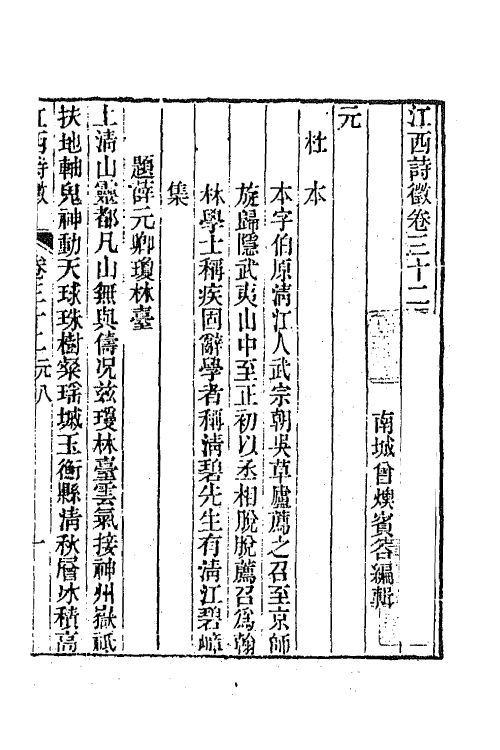 江西詩徵卷三十二
南城曾燠賓谷編輯
元
杜本
本字伯原清江人武宗朝吳草廬薦之召至京師
旋歸隱武夷山中至正初以丞相脫脫薦召爲翰
林學士稱疾固辭學者稱清碧先生有清江碧嶂
集
題薛元卿瓊林臺
上清山靈都凡山無與儔况茲瓊林臺雲氣接神州嶽祇
扶地軸鬼神動天球珠樹粲瑶城玉衡縣清秋層冰積高
江西詩徵 卷三十二 元八 一